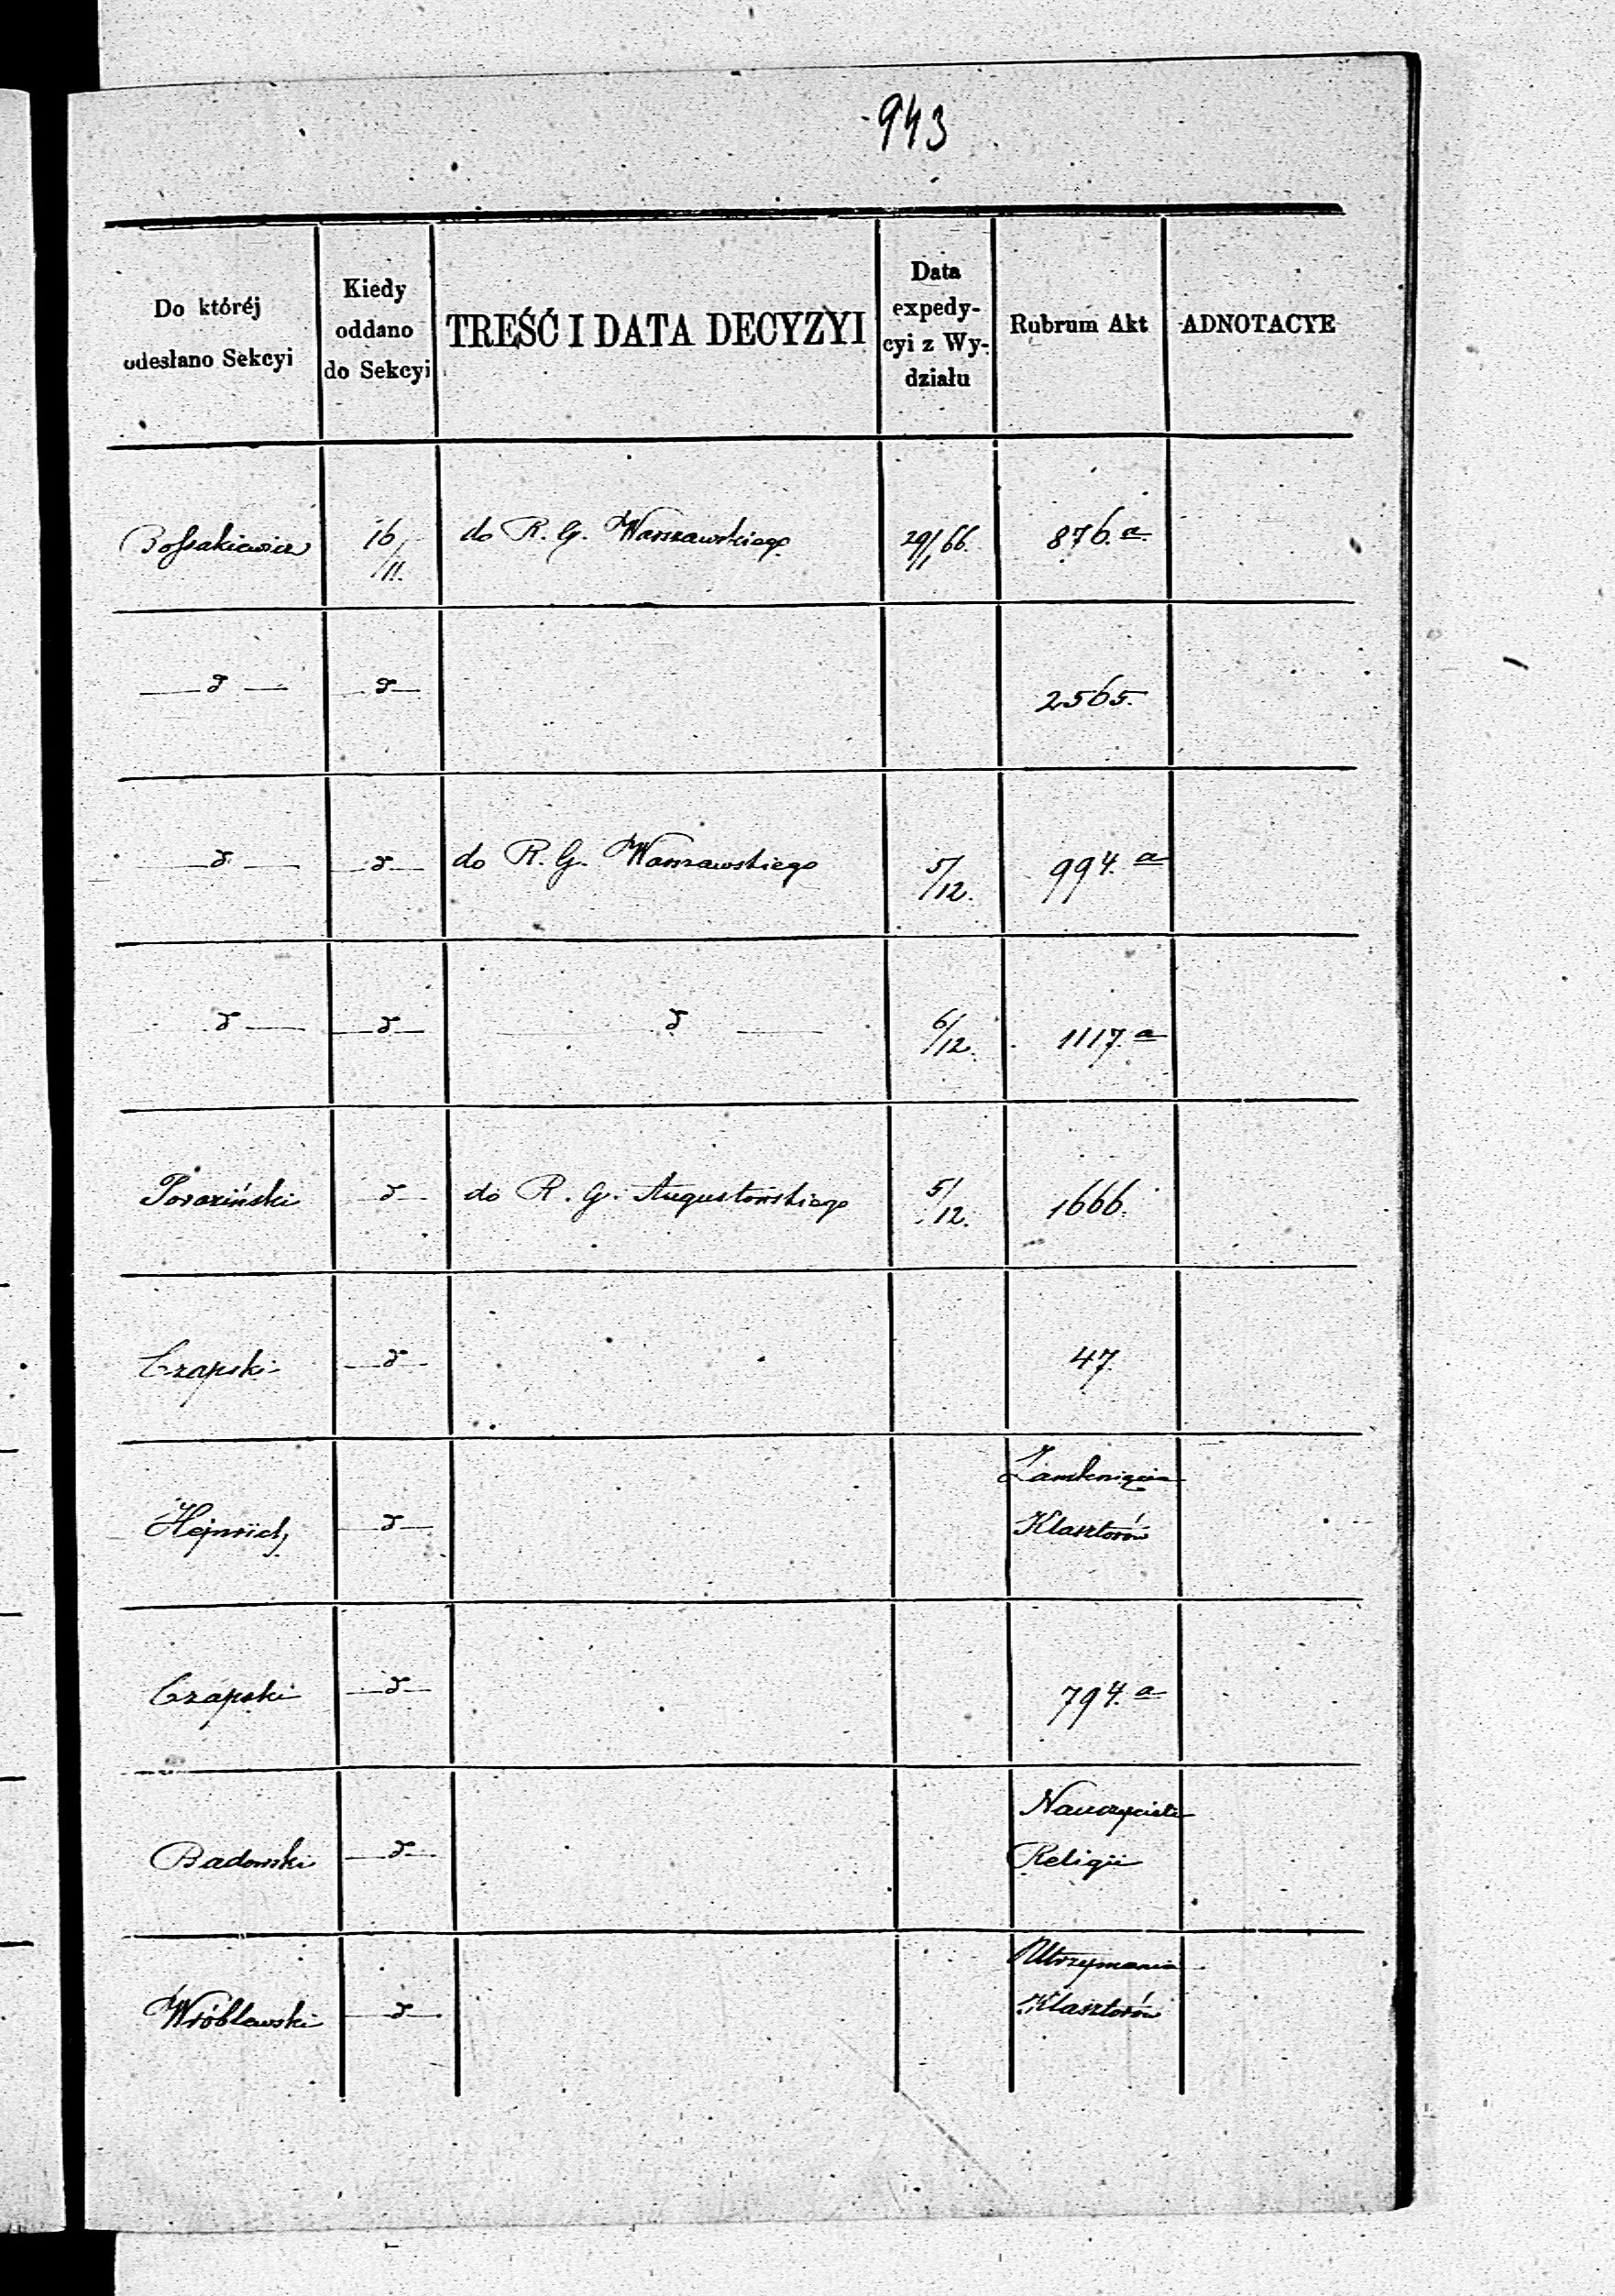 943
Do któréj
odesłano Sekcyi
Kiedy
oddano
do Sekcyi
TREŚĆ I DATA DECYZYI
Data
expedy-
cyi z Wy-
działu
Rubrum Akt
ADNOTACYE
16/11. do R. G. Warszawskiego 29/1 66. 876.a
—d— —d— 2565.
—d— —d— do R. G. Warszawskiego 5/12. 994.a
—d— —d— —d— 6/12. 1117.a
—d— do R. G. Augustowskiego 5/12. 1666.
Czapski —d— 47.
Zamknięcia
Hejnrich —d— Klasztorów
Czapski —d— 794.a
Nauczyciele
Badowski —d— Religii
Utrzymania
Wróblewski —d— Klasztorów